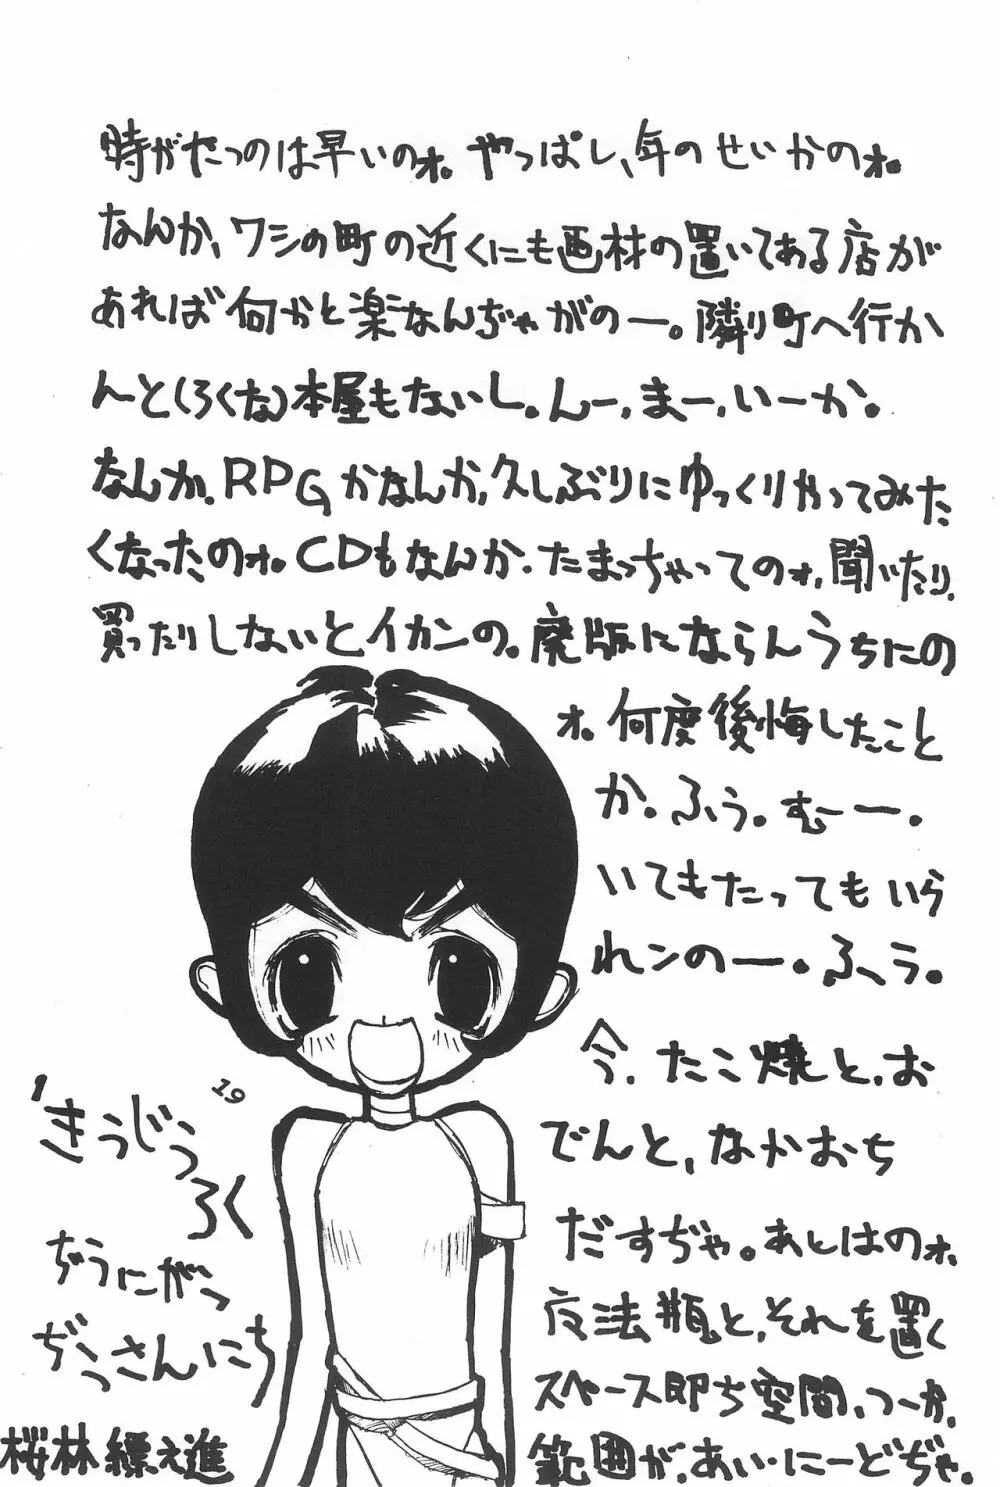 時がたつのは早いのォ。やっぱし、年のせいかのォ。
なんか、ワシの町の近くにも画材の置いてある店が
あれば何かと楽なんぢゃがのー。隣り町へ行か
んと(ろくな)本屋もないし。んー、まー、いーか。
なんか、RPGかなんか、久しぶりにゆっくりやってみた
くなったのォ。CDもなんか、たまっちゃってのォ、聞いたり、
買ったりしないとイカンの。廃版にならんうちにの
ォ。何度後悔したこと
か。ふぅ。むーー。
いてもたってもいら
れンのー。ふぅ。
今、たこ焼と、お
でんと、なかおち
だすぢゃ。あとはのォ、
反法瓶と、それを置く
スペース即ち空間、つーか、
範囲が、あい・にーどぢゃ。
19
'きうじうろく
ぢうにがつ
ぢうさんにち
桜林縹え進